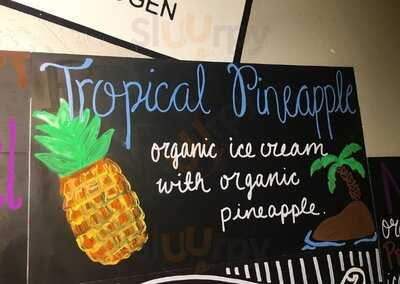 OGEN
Tropical Pineapple
organic ice cream
with organic
pineapple.
sluurpy
sluurpy